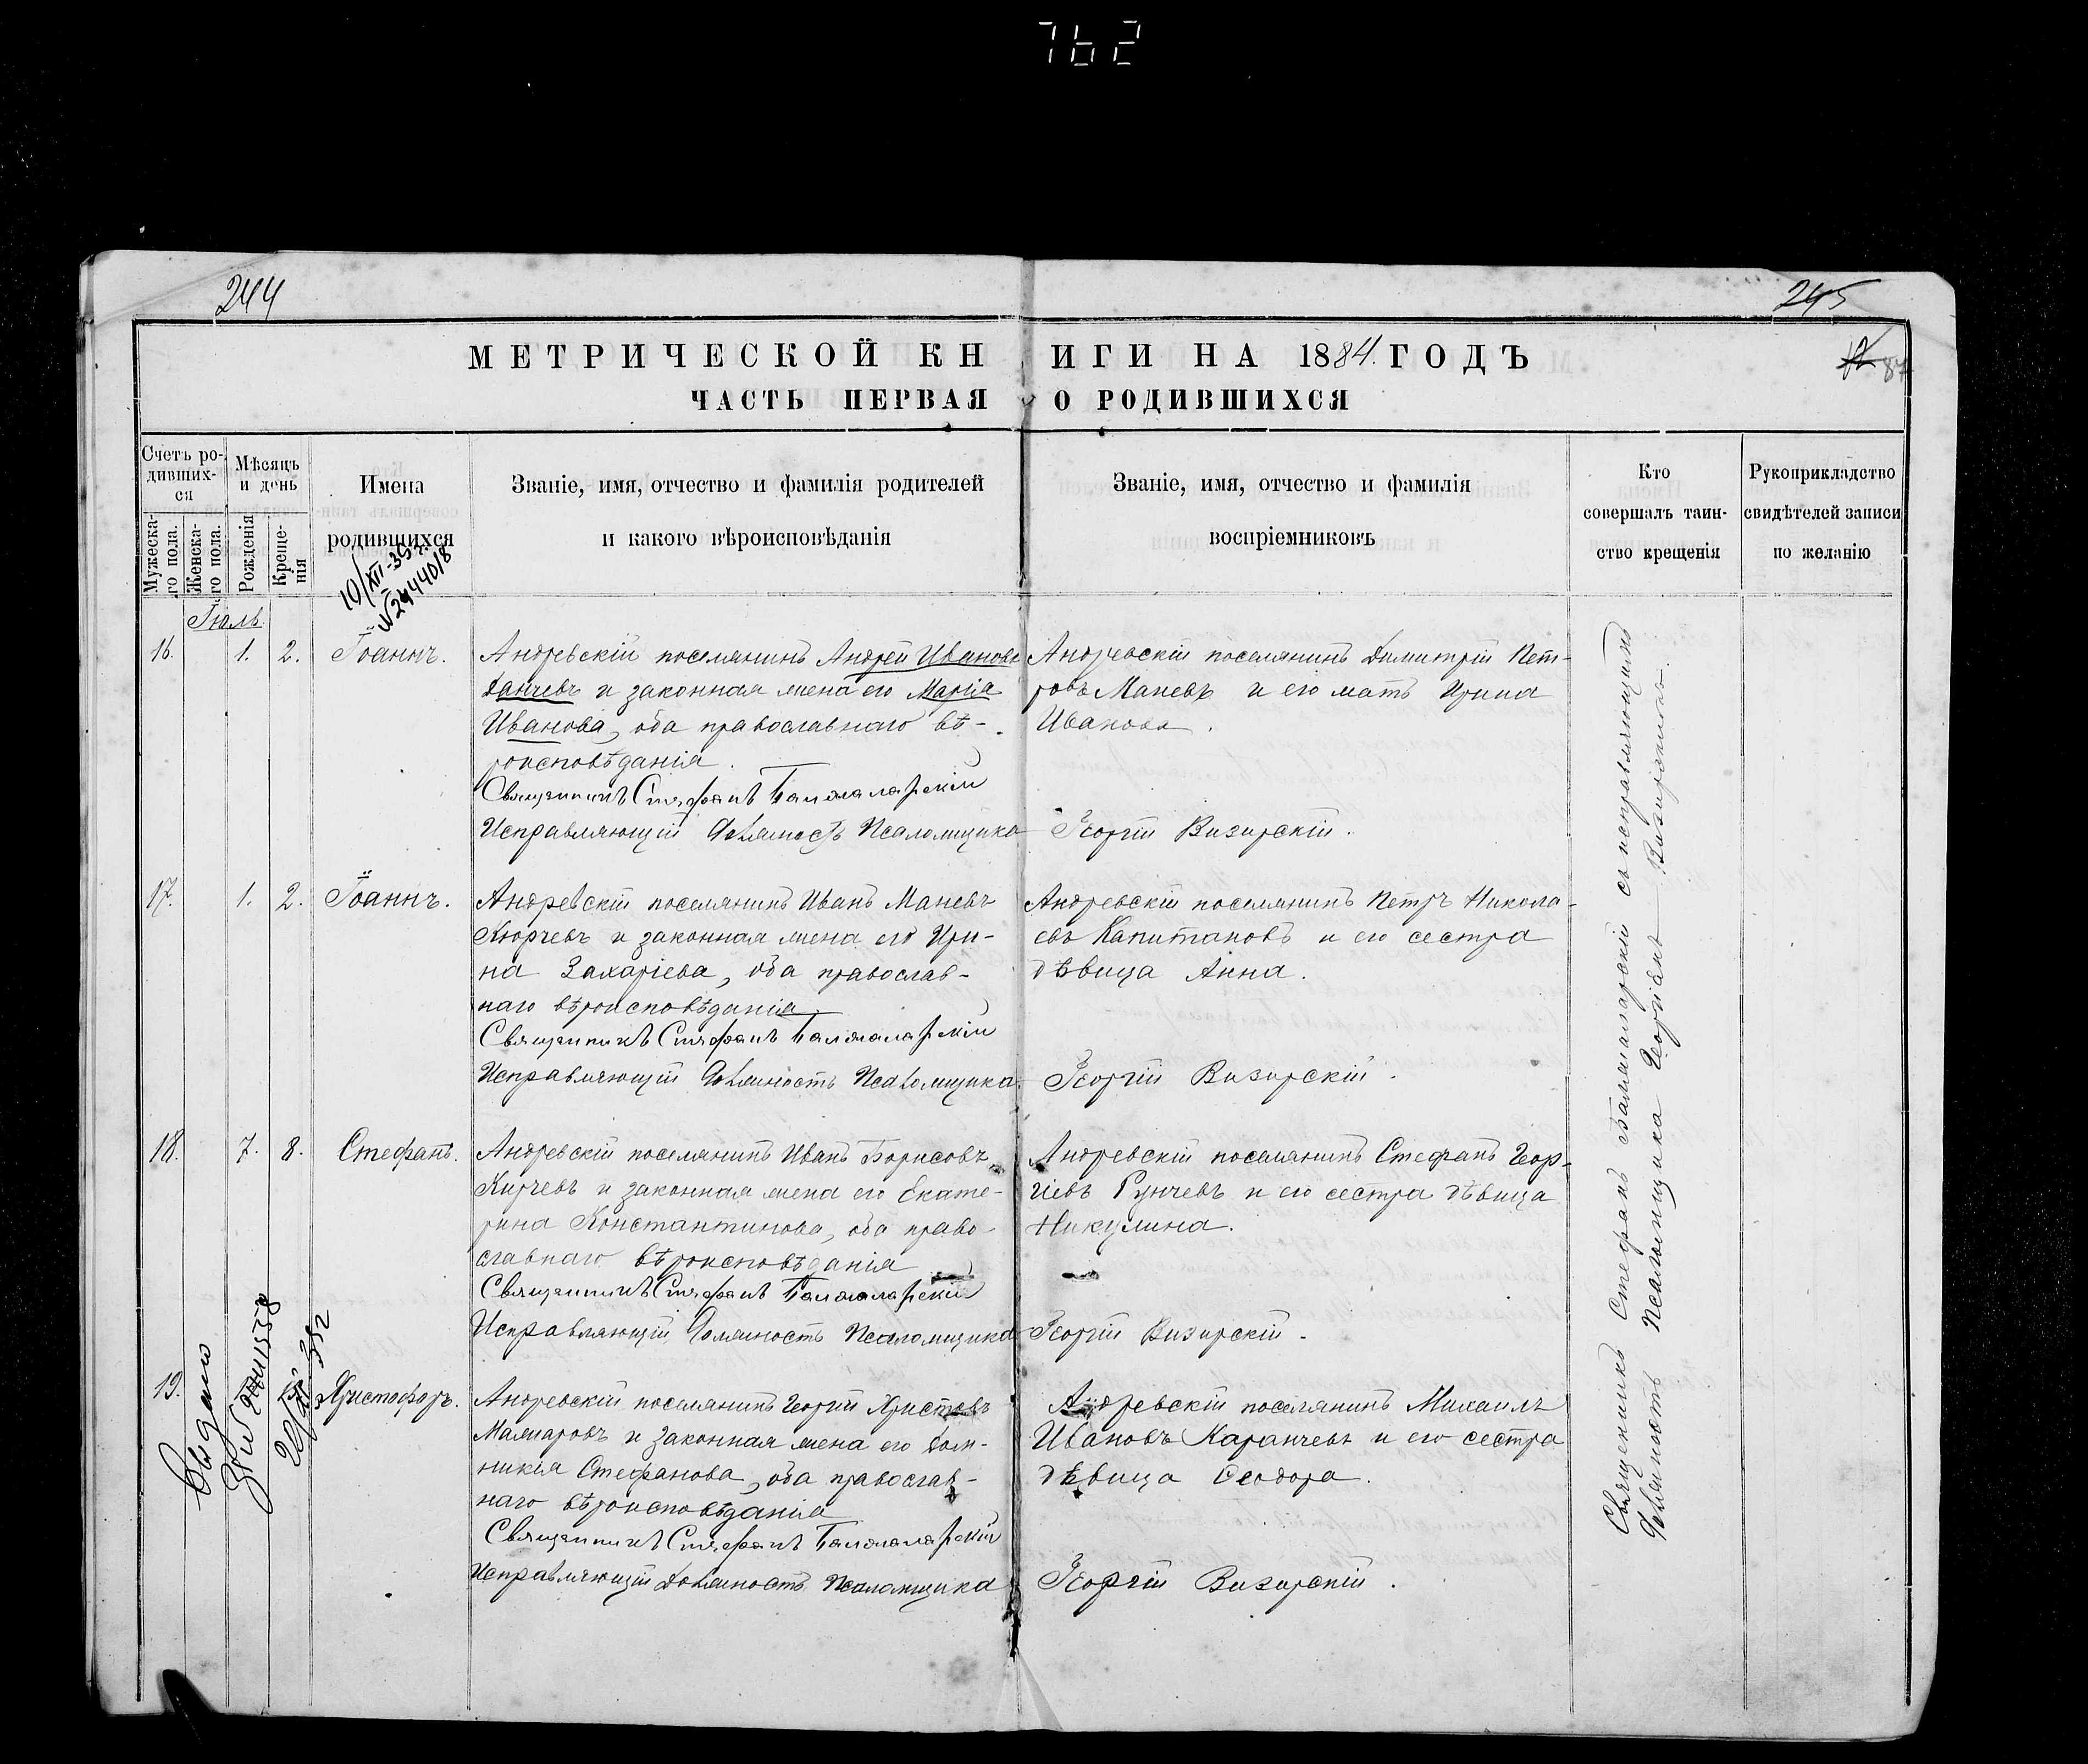 762
244
245
МЕТРИЧЕСКОЙ КНИГИ НА 1884. ГОДЪ
87
ЧАСТЬ ПЕРВАЯ О РОДИВШИХСЯ
Счетъ ро-
дивших-
ся
Мужеска-
го пола.
Женска-
го пола.
Мѣсяцъ
и день
Рожденія
Креще-
нія
Имена
родившихся
Званіе, имя, отчество и фамилія родителей
и какого вѣроисповѣданія
Званіе, имя, отчество и фамилія
воспріемниковъ
Кто
совершалъ таин-
ство крещенія
Рукоприкладство
свидѣтелей записи
по желанію
10/XII-39 г.
№ 24440/8
Іюль
16. 1. 2. Іоаннъ.
Андревскій поселянинъ Андрей Ивановъ
Данчевъ и законная жена его Марія
Иванова, оба православнаго вѣ-
роисповѣданія.
Священникъ Стефанъ Балжаларскій
Исправляющій Должность Псаломщика
Андревскій поселянинъ Димитрій Пет-
ровъ Маневъ и его мать Ирина
Иванова.
Георгій Визирскій.
17. 1. 2. Іоаннъ.
Андревскій поселянинъ Иванъ Маневъ
Кюрчевъ и законная жена его Ири-
на Захаріева, оба православ-
наго вѣроисповѣданія
Священникъ Стефанъ Балжаларскій
Исправляющій Должность Псаломщика
Андревскій поселянинъ Петръ Никола-
евъ Капитановъ и его сестра
дѣвица Анна.
Георгій Визирскій.
18. 7. 8. Стефанъ.
Андревскій поселянинъ Иванъ Борисовъ
Кирчевъ и законная жена его Екате-
рина Константинова, оба право-
славнаго вѣроисповѣданія
Священникъ Стефанъ Балжаларскій
Исправляющій Должность Псаломщика
Андревскій поселянинъ Стефанъ Геор-
гіевъ Рунчевъ и его сестра дѣвица
Никулина.
Георгій Визирскій.
19. Христофоръ.
Выдано
Андревскій поселянинъ Георгій Христовъ
Мажаровъ и законная жена его Дом-
никія Стефанова, оба православ-
наго вѣроисповѣданія
Священникъ Стефанъ Балжаларскій
Исправляющій Должность Псаломщика
Андревскій поселянинъ Михаилъ
Ивановъ Каранчевъ и его сестра
дѣвица Ѳеодора.
Георгій Визирскій.
Священникъ Стефанъ Балжаларскій съ исправляющимъ
Должность Псаломщика Георгіемъ Визирскимъ.